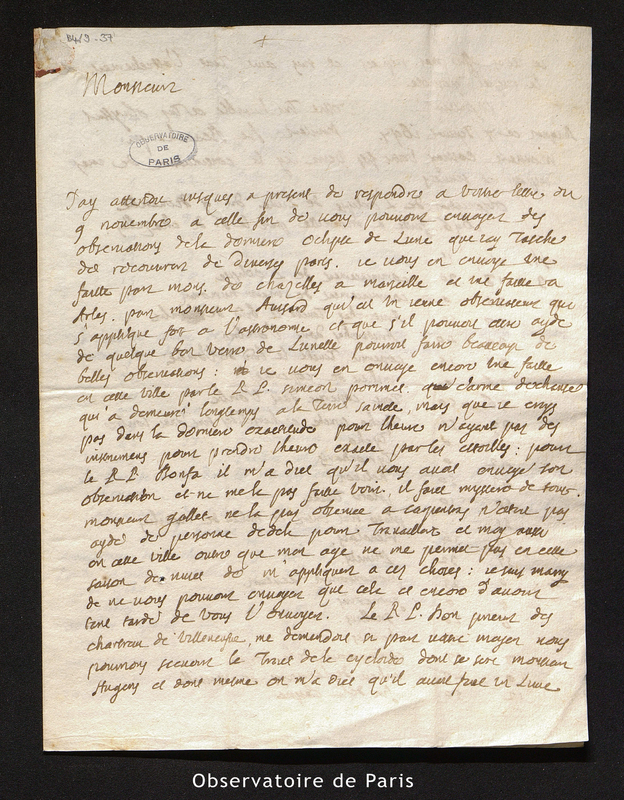 B4/9-37
Monsieur
OBSERVATOIRE
DE
PARIS
J'ay attendu jusques a present de respondre a votre lettre du
9 novembre a celle fin de vous pouvoir envoyer des
observations de la derniere eclipse de Lune que jay tasche
de recouvrer de diverses pars. je vous en envoye une
faitte par mons. de chazelles a marseille et une faitte a
Arles par monsieur Aussard qu'est un jeune observateur qui
s'applique fort a l'astronomie et que s'il pouvoit estre aydé
de quelque bon verre de Lunette pourroit faire beaucop de
belles observations: je vous en envoye encore une faitte
en cette ville par le R.P. carme deschaussé
qui a demeuré longtemps a la Terre saincte, mais que je croys
pas dans la derniere pour lheure n'ayant pas des
instrumens pour prendre lheure exacte par les estoilles: pour
le R.P. Bonfa il m'a dict qu'il vous avoit envoyé son
observation et ne me la pas faitte voir, il fait mystere de tout.
monsieur gallet ne la peus observer a carpentras n'estant pas
aydé de personne dedela pour Travailler et moy aussi
en cette ville outre que mon age ne me permet pas en cette
saison de nuict de m'appliquer a ces choses: je suis marry
de ne vous pouvoir envoyer que cela et encore d'avoir
tant tardé de vous l'envoyer. Le R.P. Dom prieur des
chartreux de Villeneufve, me demandoit si par votre moyen nous
pourrions scavoir le Traicé de la cycloide dont se sert monsieur
Hugens et dont mesme on m'a dict qu'il avoit fait un Livre
Observatoire de Paris